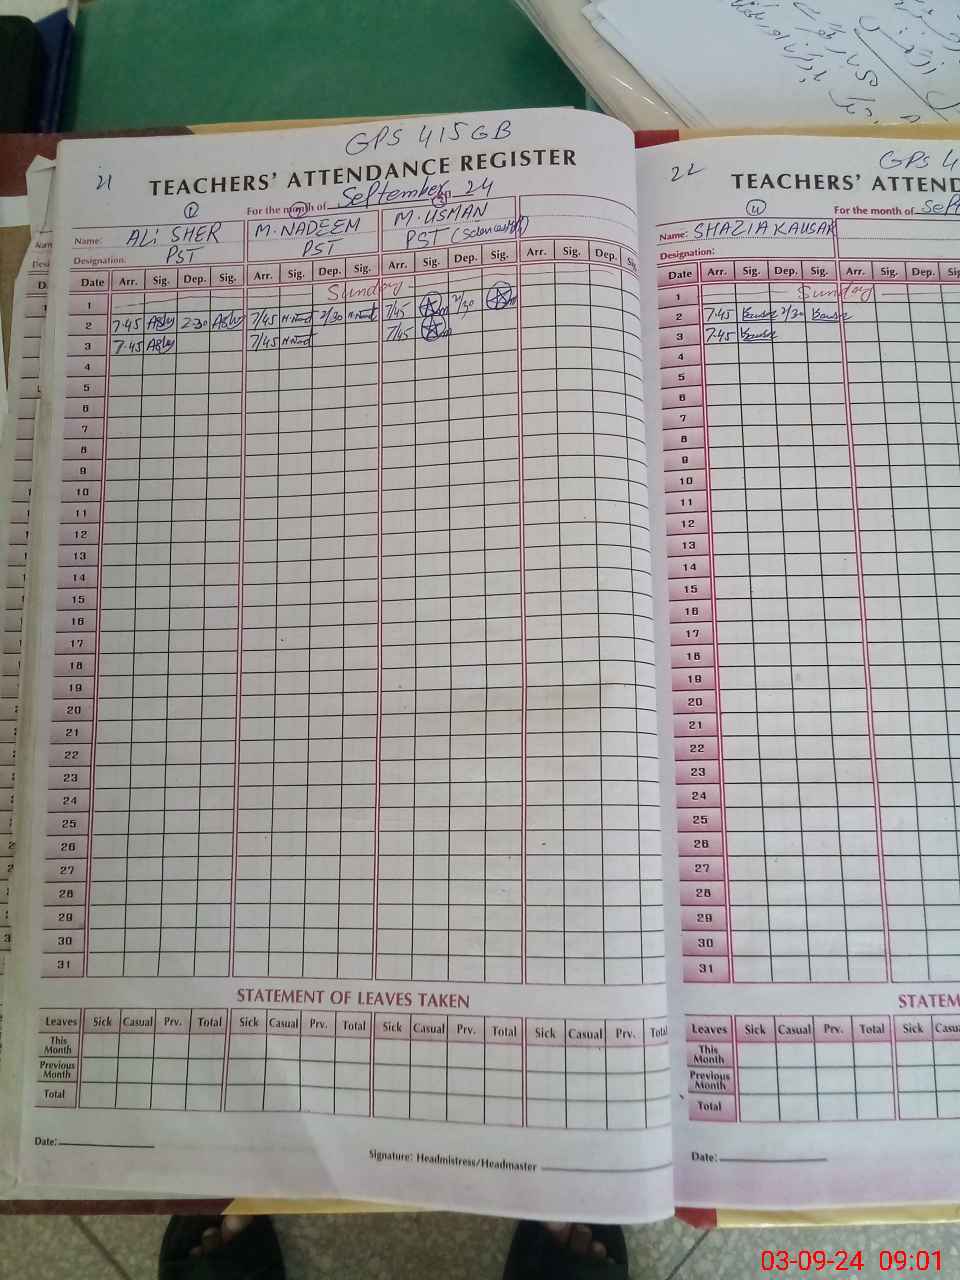 GPS 415 GB
21
TEACHERS' ATTENDANCE REGISTER
For the month of September 24
1 2 3
Name: ALi SHER M. NADEEM M. USMAN
Designation: PST PST PST
Date Arr. Sig. Dep. Sig. Arr. Sig. Dep. Sig. Arr. Sig. Dep. Sig. Arr. Sig. Dep. Sig.
1 Sunday
2 7-45 2-30 7/45 2/30 7/45 2/30
3 7-45 7/45 7/45
4
5
6
7
8
9
10
11
12
13
14
15
16
17
18
19
20
21
22
23
24
25
26
27
28
29
30
31
STATEMENT OF LEAVES TAKEN
Leaves Sick Casual Prv. Total Sick Casual Prv. Total Sick Casual Prv. Total Sick Casual Prv. Total
This Month
Previous Month
Total
Date:
Signature: Headmistress/Headmaster
GPS 4
22
TEACHERS' ATTEND
For the month of Sept
4
Name: SHAZIA KAUSAR
Designation:
Date Arr. Sig. Dep. Sig. Arr. Sig. Dep.
1 Sunday
2 7-45 2/30
3 7-45
4
5
6
7
8
9
10
11
12
13
14
15
16
17
18
19
20
21
22
23
24
25
26
27
28
29
30
31
STATEM
Leaves Sick Casual Prv. Total Sick Casu
This Month
Previous Month
Total
Date:
03-09-24 09:01